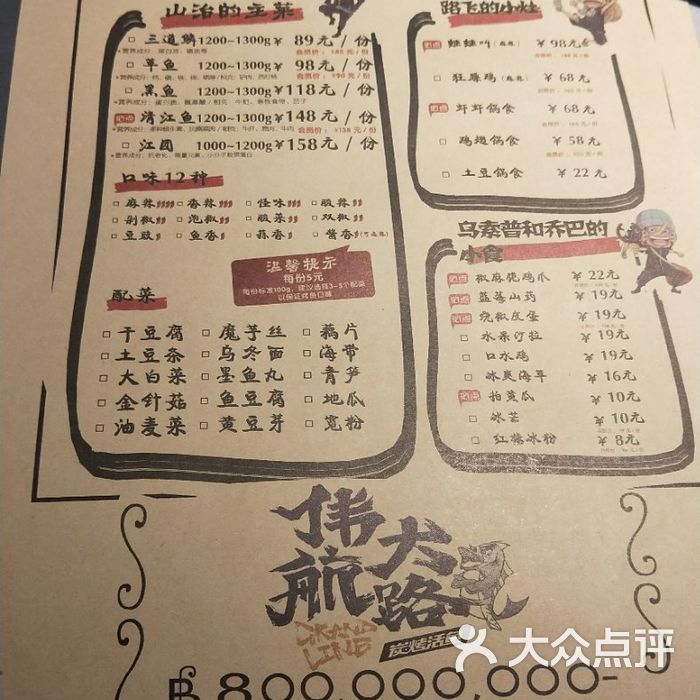 山治的主菜
三道鳞 1200~1300g ¥ 89元 / 份
草鱼 1200~1300g ¥ 98元 / 份
黑鱼 1200~1300g ¥ 118元 / 份
必点 清江鱼 1200~1300g ¥ 148元 / 份
会员价:¥138元 / 份
江团 1000~1200g ¥ 158元 / 份
口味12种
麻辣 香辣 怪味 酸辣
剁椒 泡椒 酸菜 双椒
豆豉 鱼香 蒜香 酱香
温馨提示
每份5元
每份标准100g,建议选择3-5个配菜
以保证烤鱼口味
配菜
干豆腐 魔芋丝 藕片
土豆条 乌冬面 海带
大白菜 墨鱼丸 青笋
金针菇 鱼豆腐 地瓜
油麦菜 黄豆芽 宽粉
路飞的小灶
必点 蛙蛙叫(麻辣) ¥ 98元
狂廉鸡(麻辣) ¥ 68元
必点 虾虾锅食 ¥ 68元
鸡翅锅食 ¥ 58元
土豆锅食 ¥ 22元
乌索普和乔巴的
小食
必点 椒麻脱鸡爪 ¥ 22元
必点 蓝莓山药 ¥ 19元
必点 烧椒皮蛋 ¥ 19元
水果沙拉 ¥ 19元
口水鸡 ¥ 19元
冰爽海草 ¥ 16元
必点 拍黄瓜 ¥ 10元
冰芸 ¥ 10元
红糖冰粉 ¥ 8元
伟大航路
GRAND
LINE
炭烤活鱼
฿ 800,000,000-
大众点评